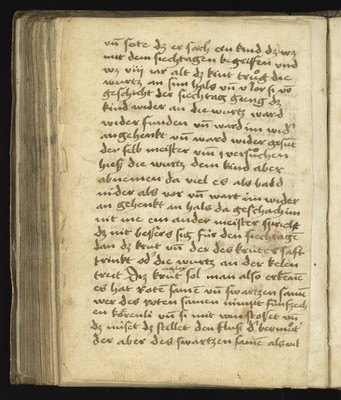 vn̄ seite dz er sach ein kind dz wz
mit dem siechtagen begriffen vnd
wz viij iar alt dz kint trůg die
wurtz an sim hals vn̄ v̄lor si vō
geschicht der siechtag gieng dz
kind wider an die wurtz ward
wider funden vn̄ ward im wid̄
angehenkt vn̄ ward wider gesūt
der selb meister win versůchen
hies die wurtz dem kind aber
abnemen da viel es als bald
nider als vor vn̄ wart im wider
an gehenkt an hals da geschach im
nit me ein ander meister spricht
dz nit bessers sig für den siechtagē
dan dz krut vn̄ der des krutes saft
trinkt od̄ die wurtz an der kelen
treit Diz krut sol man also erkenē
es hat roten samē vn̄ swartzen samē
wer des roten samen nimmt fünfzech
en körenli vn̄ si mit win stosset vn̄
dz nüset dz stellet den fluss
der aber des swartzen samē als vil